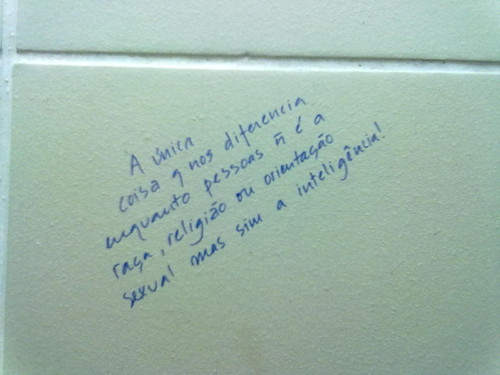 A única
coisa q nos diferencia
enquanto pessoas ñ é a
raça, religião ou orientação
sexual mas sim a inteligência!